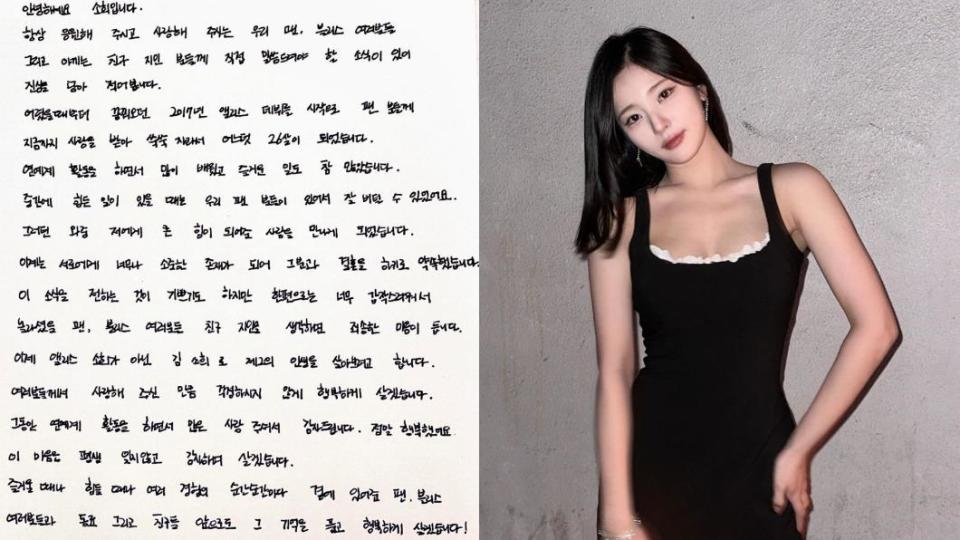 안녕하세요 소희입니다.
항상 응원해 주시고 사랑해 주시는 우리 팬, 블리스 여러분들
그리고 아끼는 친구 지인 분들께 직접 말씀드려야 할 소식이 있어
진심을 담아 적어봅니다.
어렸을때부터 꿈꿔오던 2017년 앨리스 데뷔를 시작으로 팬 분들께
지금까지 사랑을 받아 쑥쑥 자라서 어느덧 26살이 되었습니다.
연예계 활동을 하면서 많이 배웠고 즐거운 일도 참 많았습니다.
중간에 힘든 일이 있을 때는 우리 팬 분들이 있어서 잘 버틸 수 있었어요.
그러던 와중 저에게 큰 힘이 되어준 사람을 만나게 되었습니다.
이제는 서로에게 너무나 소중한 존재가 되어 그분과 결혼을 하기로 약속했습니다
이 소식을 전하는 것이 기쁘기도 하지만 한편으로는 너무 갑작스러워서
놀라셨을 팬, 블리스 여러분들 친구 지인분 생각하면 죄송한 마음이 듭니다.
이제 앨리스 소희가 아닌 김소희로 제2의 인생을 살아보려고 합니다.
여러분들께서 사랑해 주신 만큼 걱정하시지 않게 행복하게 살겠습니다.
그동안 연예계 활동을 하면서 많은 사랑 주셔서 감사드립니다. 정말 행복했어요
이 마음은 평생 잊지않고 감사하며 살겠습니다.
즐거울 때나 힘들 때나 여러 경험의 순간순간마다 곁에 있어준 팬, 블리스
여러분들과 동료 그리고 친구들 앞으로도 그 기억을 품고 행복하게 살겠습니다!